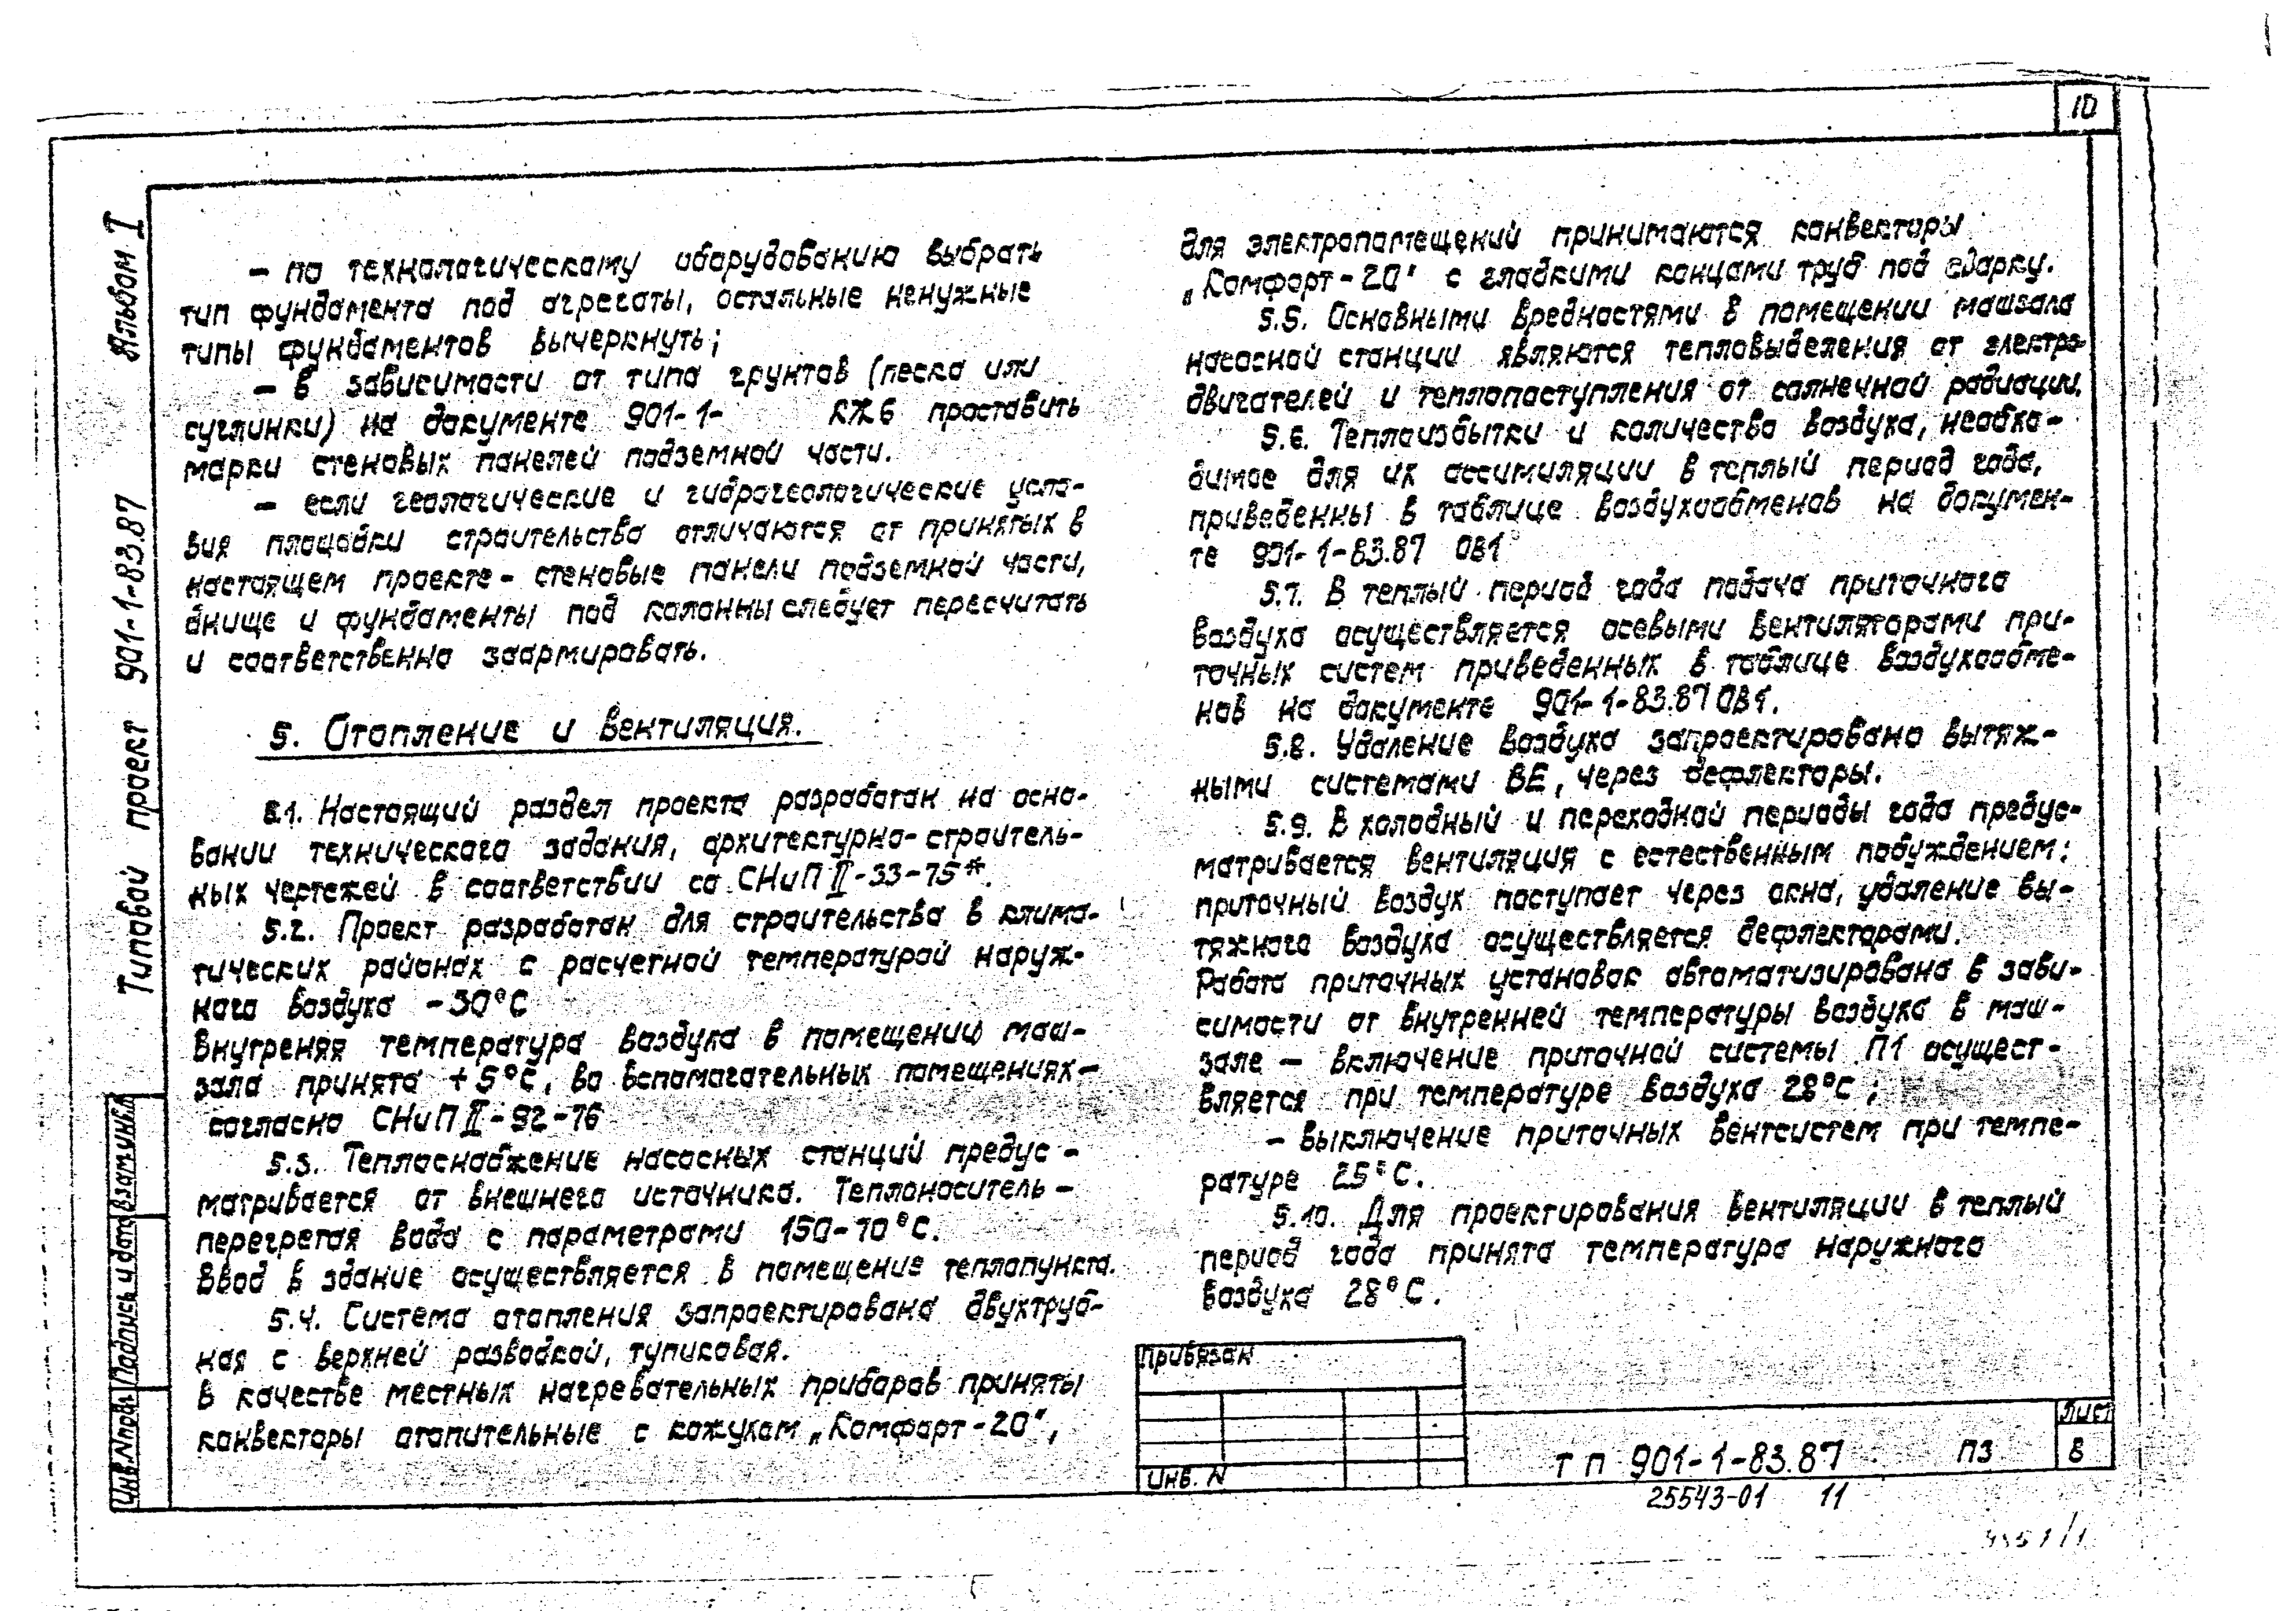 10
Альбом I
Типовой проект 901-1-83.87
Взам инв.
Подпись и дата
Инв.Nподл.
– по технологическому оборудованию выбрать
тип фундамента под агрегаты, остальные ненужные
типы фундаментов вычеркнуть;
– в зависимости от типа грунтов (песка или
суглинки) на документе 901-1- КЖ6 проставить
марки стеновых панелей подземной части.
– если геологические и гидрогеологические усло-
вия площадки строительства отличаются от принятых в
настоящем проекте - стеновые панели подземной части,
днище и фундаменты под колонны следует пересчитать
и соответственно заармировать.
5. Отопление и вентиляция.
5.1. Настоящий раздел проекта разработан на осно-
вании технического задания, архитектурно-строитель-
ных чертежей в соответствии со СНиП II-33-75*.
5.2. Проект разработан для строительства в клима-
тических районах с расчетной температурой наруж-
ного воздуха -30°С
Внутреняя температура воздуха в помещении маш-
зала принята +5°С, во вспомогательных помещениях –
согласно СНиП II-92-76
5.3. Теплоснабжение насосных станций предус-
матривается от внешнего источника. Теплоноситель –
перегретая вода с параметрами 150-70°С.
Ввод в здание осуществляется в помещение теплопункта.
5.4. Система отопления запроектирована двухтруб-
ная с верхней разводкой, тупиковая.
В качестве местных нагревательных приборов приняты
конвекторы отопительные с кожухом „Комфорт-20",
для электропомещений принимаются конвекторы
„Комфорт-20" с гладкими концами труб под сварку.
5.5. Основными вредностями в помещении машзала
насосной станции являются тепловыделения от электро-
двигателей и теплопоступления от солнечной радиации.
5.6. Теплоизбытки и количество воздуха, необхо-
димое для их ассимиляции в теплый период года,
приведенны в таблице воздухообменов на докумен-
те 901-1-83.87 ОВ1
5.7. В теплый период года подача приточного
воздуха осуществляется осевыми вентиляторами при-
точных систем приведенных в таблице воздухообме-
нов на документе 901-1-83.87 ОВ1.
5.8. Удаление воздуха запроектировано вытяж-
ными системами ВЕ, через дефлекторы.
5.9. В холодный и переходной периоды года предус-
матривается вентиляция с естественным побуждением:
приточный воздух поступает через окна, удаление вы-
тяжного воздуха осуществляется дефлекторами.
Работа приточных установок автоматизирована в зави-
симости от внутренней температуры воздуха в маш-
зале – включение приточной системы П1 осущест-
вляется при температуре воздуха 28°С;
– выключение приточных вентсистем при темпе-
ратуре 25°С.
5.10. Для проектирования вентиляции в теплый
период года принята температура наружного
воздуха 28°С.
Привязан
Инв. N
ТП 901-1-83.87 ПЗ
Лист
8
25543-01 11